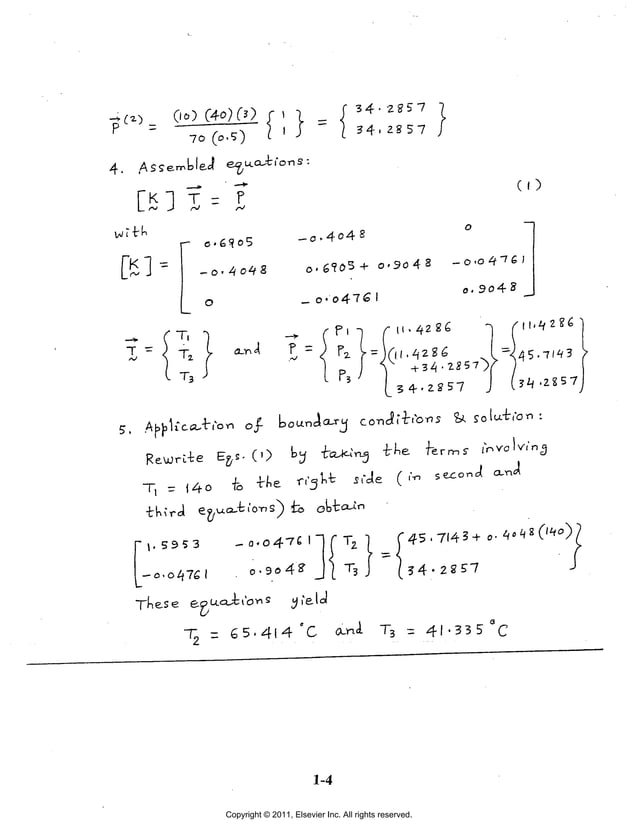 P⃗^(2) = (10) (40) (3) / 70 (0.5) { 1 1 } = { 34.2857 34.2857 }
4. Assembled equations:
[K] T⃗ = P⃗ (1)
with
[K] = [ 0.6905 -0.4048 0
-0.4048 0.6905 + 0.9048 -0.04761
0 -0.04761 0.9048 ]
T⃗ = { T1 T2 T3 } and P⃗ = { P1 P2 P3 } = { 11.4286 (11.4286 +34.2857) 34.2857 } = { 11.4286 45.7143 34.2857 }
5. Application of boundary conditions & solution:
Rewrite Eqs. (1) by taking the terms involving
T1 = 140 to the right side (in second and
third equations) to obtain
[ 1.5953 -0.04761 ] { T2 } = { 45.7143 + 0.4048 (140) }
[ -0.04761 0.9048 ] { T3 } { 34.2857 }
These equations yield
T2 = 65.414 °C and T3 = 41.335 °C
1-4
Copyright © 2011, Elsevier Inc. All rights reserved.